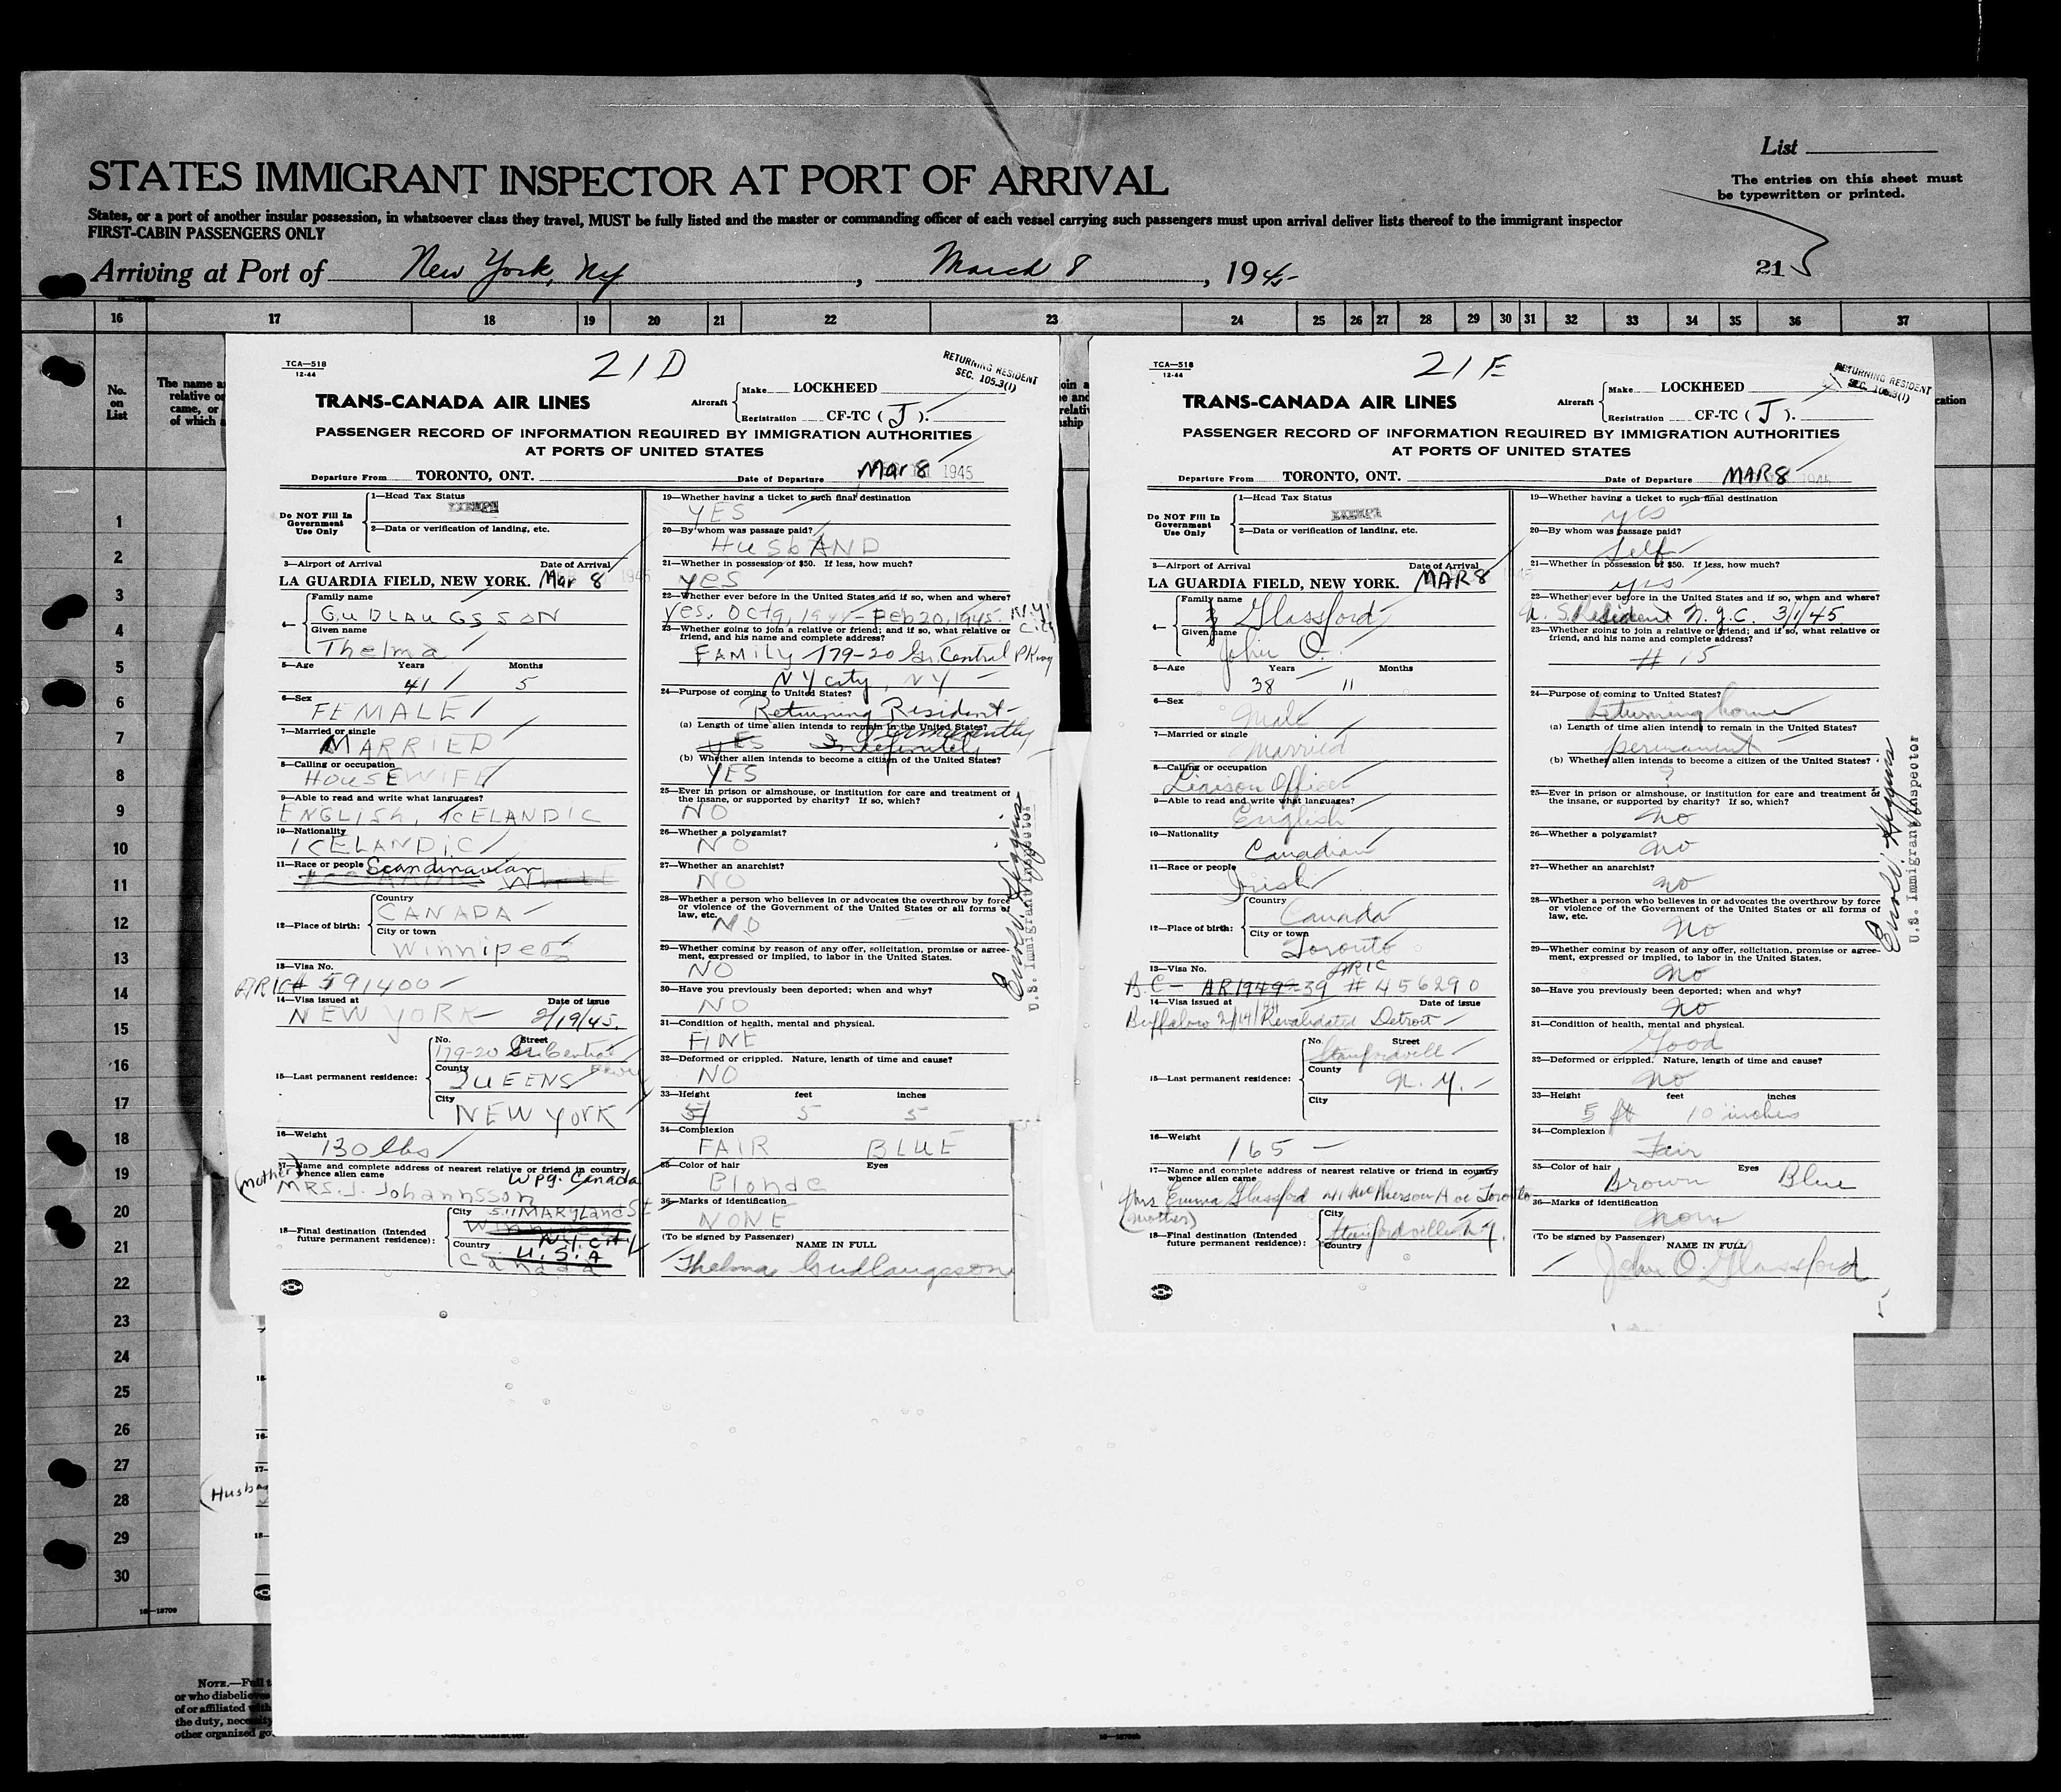 List
STATES IMMIGRANT INSPECTOR AT PORT OF ARRIVAL
The entries on this sheet must
be typewritten or printed.
States, or a port of another insular possession, in whatsoever class they travel, MUST be fully listed and the master or commanding officer of each vessel carrying such passengers must upon arrival deliver lists thereof to the immigrant inspector
FIRST-CABIN PASSENGERS ONLY
Arriving at Port of New York, NY, March 8, 1945
21
16 17 18 19 20 21 22 23 24 25 26 27 28 29 30 31 32 33 34 35 36 37
No.
on
List
The name a
relative or
came, or
of which a
1
2
3
4
5
6
7
8
9
10
11
12
13
14
15
16
17
18
19
20
21
22
23
24
25
26
27
28
29
30
TCA—518
12-44
21 D
RETURNING RESIDENT
SEC. 105.3(1)
TRANS-CANADA AIR LINES
Aircraft
Make LOCKHEED
Registration CF-TC ( J ).
PASSENGER RECORD OF INFORMATION REQUIRED BY IMMIGRATION AUTHORITIES
AT PORTS OF UNITED STATES
Departure From TORONTO, ONT.
Date of Departure Mar 8 1945
Do NOT Fill In
Government
Use Only
1—Head Tax Status
EXEMPT
2—Data or verification of landing, etc.
3—Airport of Arrival Date of Arrival
LA GUARDIA FIELD, NEW YORK. Mar 8
4—
Family name
GUDLAUGSSON
Given name
Thelma
5—Age Years Months
41 5
6—Sex
FEMALE
7—Married or single
MARRIED
8—Calling or occupation
HOUSEWIFE
9—Able to read and write what languages?
ENGLISH, ICELANDIC
10—Nationality
ICELANDIC
11—Race or people Scandinavian
12—Place of birth:
Country
CANADA
City or town
Winnipeg
13—Visa No.
ARIC# 591400
14—Visa issued at Date of issue
NEW YORK 2/19/45.
15—Last permanent residence:
No. Street
179-20 Gr. Central Pkwy
County
QUEENS
City
NEW YORK
16—Weight
130 lbs
17—Name and complete address of nearest relative or friend in country
whence alien came
(mother) Wpg. Canada
MRS. J. Johannsson
511 MARYLand St
18—Final destination (Intended
future permanent residence):
City
Winnipeg
N.Y. City
Country
U.S.A
Canada
19—Whether having a ticket to such final destination
YES
20—By whom was passage paid?
HUSbAND
21—Whether in possession of $50. If less, how much?
yes
22—Whether ever before in the United States and if so, when and where?
Yes. Oct 9, 1944 - Feb 20, 1945. N.Y. C.
23—Whether going to join a relative or friend; and if so, what relative or
friend, and his name and complete address?
FAMILY 179-20 Gr. Central PKwy
N Y city, NY
24—Purpose of coming to United States?
Returning Resident
(a) Length of time alien intends to remain in the United States?
Permanently
YES Indefinitely
(b) Whether alien intends to become a citizen of the United States?
YES
25—Ever in prison or almshouse, or institution for care and treatment of
the insane, or supported by charity? If so, which?
NO
26—Whether a polygamist?
NO
27—Whether an anarchist?
NO
28—Whether a person who believes in or advocates the overthrow by force
or violence of the Government of the United States or all forms of
law, etc.
NO
29—Whether coming by reason of any offer, solicitation, promise or agree-
ment, expressed or implied, to labor in the United States.
NO
30—Have you previously been deported; when and why?
NO
31—Condition of health, mental and physical.
FINE
32—Deformed or crippled. Nature, length of time and cause?
NO
33—Height feet inches
5 5
34—Complexion
FAIR BLUE
35—Color of hair Eyes
Blonde
36—Marks of identification
NONE
(To be signed by Passenger)
NAME IN FULL
Thelma Gudlaugsson
U.S. Immigrant Inspector
TCA—518
12-44
21 E
RETURNING RESIDENT
SEC. 105.3(1)
cation
TRANS-CANADA AIR LINES
Aircraft
Make LOCKHEED
Registration CF-TC ( J ).
PASSENGER RECORD OF INFORMATION REQUIRED BY IMMIGRATION AUTHORITIES
AT PORTS OF UNITED STATES
Departure From TORONTO, ONT.
Date of Departure MAR 8 1945
Do NOT Fill In
Government
Use Only
1—Head Tax Status
EXEMPT
2—Data or verification of landing, etc.
3—Airport of Arrival Date of Arrival
LA GUARDIA FIELD, NEW YORK. MAR 8
4—
Family name
Glassford
Given name
John O.
5—Age Years Months
38 11
6—Sex
Male
7—Married or single
Married
8—Calling or occupation
Liaison Officer
9—Able to read and write what languages?
English
10—Nationality
Canadian
11—Race or people
Irish
12—Place of birth:
Country
Canada
City or town
Toronto
13—Visa No. ARIC
# 456290
14—Visa issued at Date of issue
Buffalow Revalidated Detroit
15—Last permanent residence:
No. Street
Stanfordvill
County
N.Y.
City
16—Weight
165
17—Name and complete address of nearest relative or friend in country
whence alien came
Mrs Emma Glassford Ave Toronto
(Mother)
18—Final destination (Intended
future permanent residence):
City
Stanfordville N.Y.
Country
19—Whether having a ticket to such final destination
yes
20—By whom was passage paid?
Self
21—Whether in possession of $50. If less, how much?
yes
22—Whether ever before in the United States and if so, when and where?
U.S. Resident N.Y.C. 3/1/45
23—Whether going to join a relative or friend; and if so, what relative or
friend, and his name and complete address?
# 15
24—Purpose of coming to United States?
Returning home
(a) Length of time alien intends to remain in the United States?
permanent
(b) Whether alien intends to become a citizen of the United States?
?
25—Ever in prison or almshouse, or institution for care and treatment of
the insane, or supported by charity? If so, which?
No
26—Whether a polygamist?
No
27—Whether an anarchist?
No
28—Whether a person who believes in or advocates the overthrow by force
or violence of the Government of the United States or all forms of
law, etc.
No
29—Whether coming by reason of any offer, solicitation, promise or agree-
ment, expressed or implied, to labor in the United States.
No
30—Have you previously been deported; when and why?
No
31—Condition of health, mental and physical.
Good
32—Deformed or crippled. Nature, length of time and cause?
No
33—Height feet inches
5 ft 10 inches
34—Complexion
Fair
35—Color of hair Eyes
Brown Blue
36—Marks of identification
None
(To be signed by Passenger)
NAME IN FULL
John O. Glassford
U.S. Immigrant Inspector
(Husba
16—18709
NOTE.—Full t
or who disbelieves
of or affiliated with
the duty, necess
other organized go